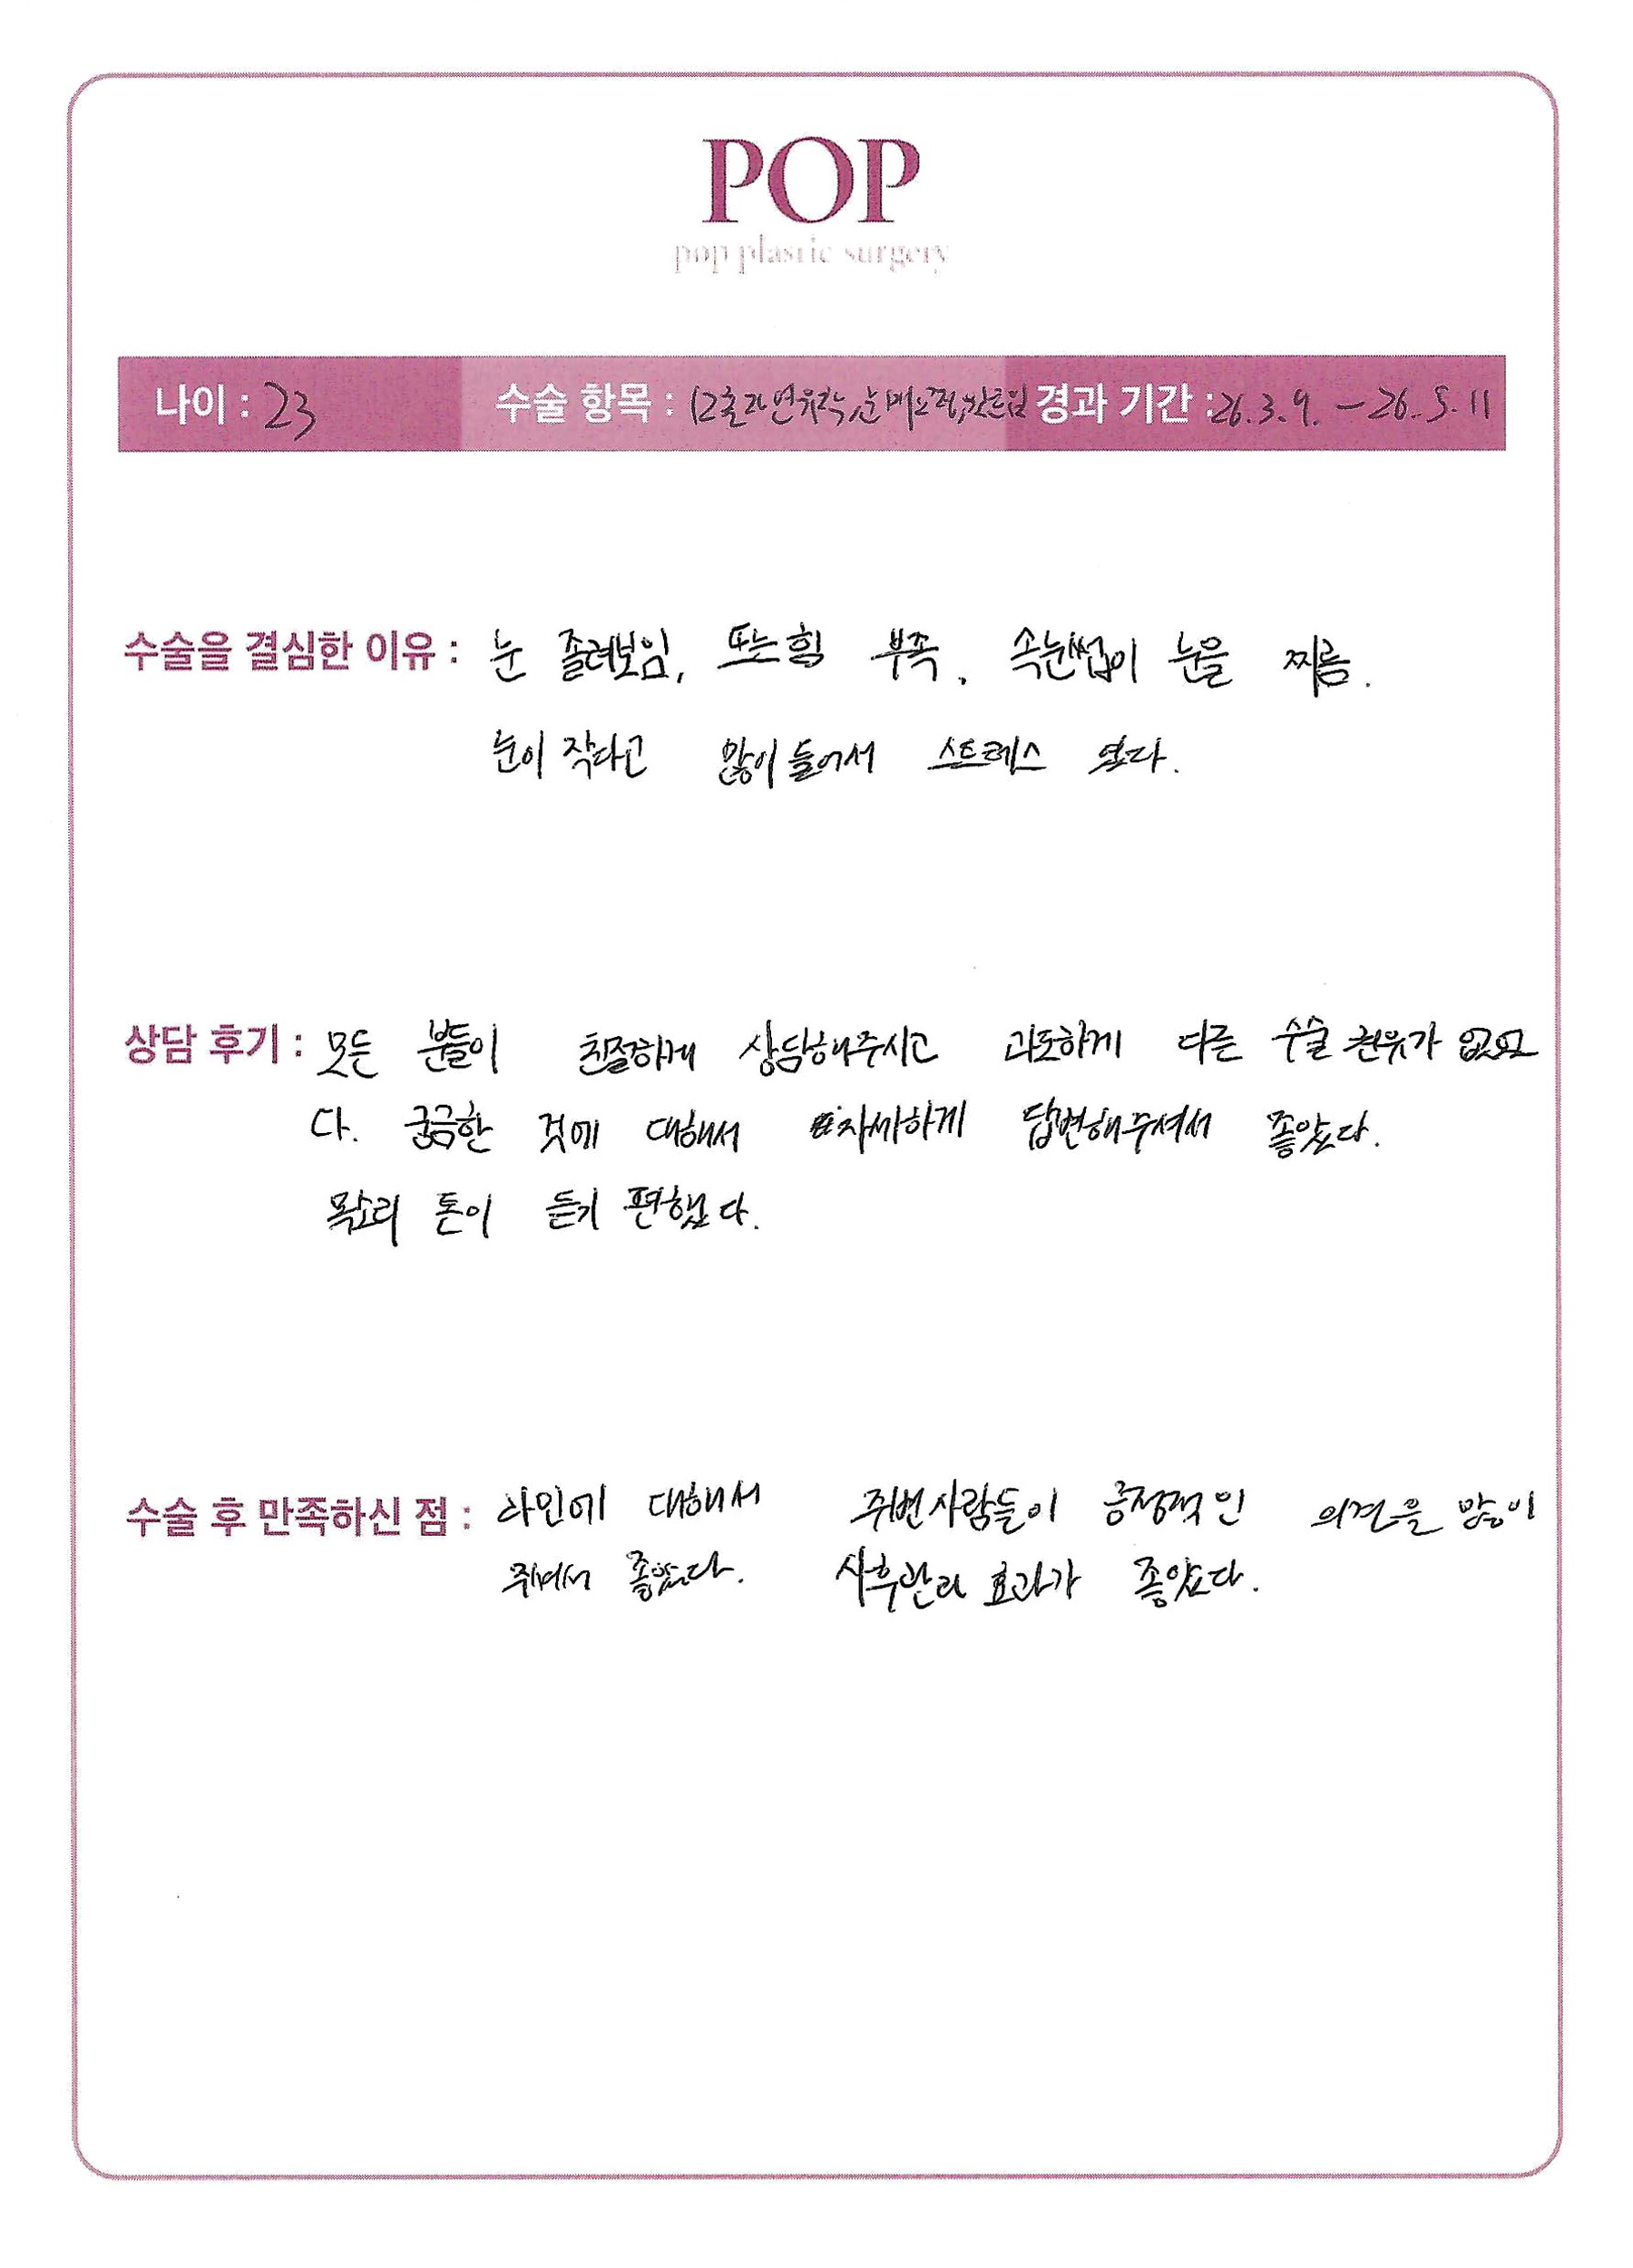 POP
pop plastic surgery
나이 : 23 수술 항목 : 자연유착, 눈매교정, 앞트임 경과 기간 : 26.3.9. - 26.5.11
수술을 결심한 이유 : 눈 졸려보임, 또는 힘 부족. 속눈썹이 눈을 찌름.
눈이 작다고 많이 들어서 스트레스 였다.
상담 후기 : 모든 분들이 친절하게 상담해주시고 과도하게 다른 수술 권유가 없었
다. 궁금한 것에 대해서 자세하게 답변해주셔서 좋았다.
목소리 톤이 듣기 편했다.
수술 후 만족하신 점 : 라인에 대해서 주변사람들이 긍정적인 의견을 많이
줘서 좋았다. 사후관리 효과가 좋았다.